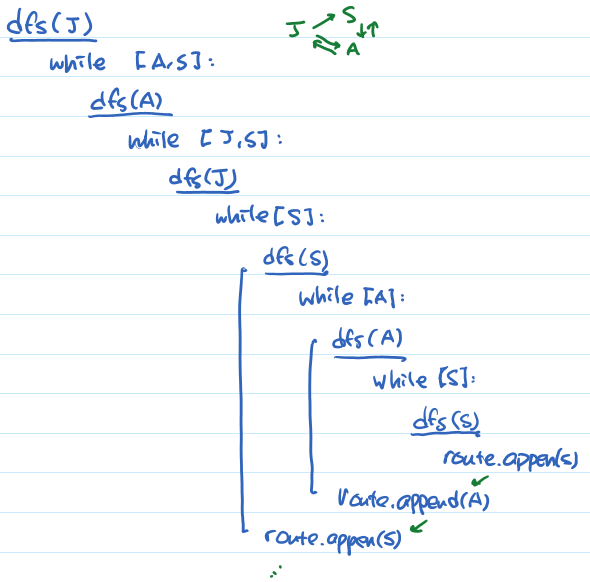 dfs(J)
J S
A
while [A,S]:
dfs(A)
while [J,S]:
dfs(J)
while[S]:
dfs(S)
while [A]:
dfs(A)
while [S]:
dfs(S)
route.appen(s)
route.append(A)
route.appen(S)